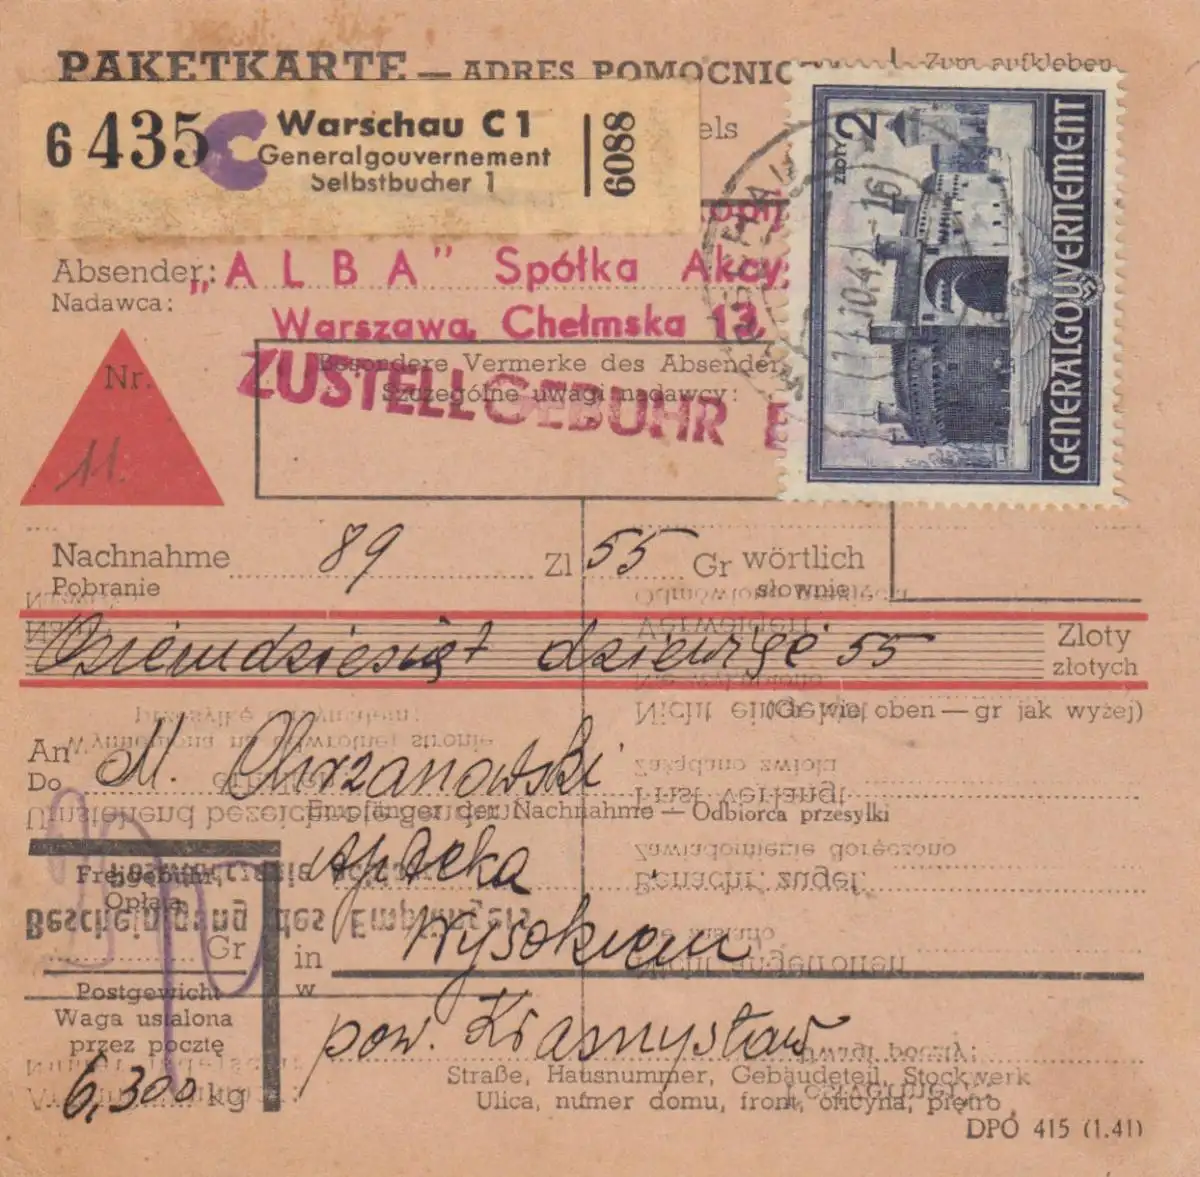 PAKETKARTE — ADRES POMOCNIC
Zum aufkleben
6 435 C Warschau C 1
Generalgouvernement
Selbstbucher 1
6088
els
ZŁOTY 2
GENERALGOUVERNEMENT
Absender:
Nadawca:
„ALBA” Spółka Akcy
Warszawa, Chełmska 13.
Besondere Vermerke des Absenders
Szczególne uwagi nadawcy:
ZUSTELLGEBÜHR
Nr.
11.
Nachnahme 89 Zl 55 Gr wörtlich
Pobranie słownie
Osiemdziesiąt dziewięć 55 Zloty
złotych
(Gr wie oben — gr jak wyżej)
An
Do M. Chrzanowski
Empfänger der Nachnahme — Odbiorca przesyłki
Apteka
Freigebühr,
Opłata
Gr
in
w Wysokiem
Postgewicht
Waga ustalona
przez pocztę
6,300 kg
pow. Krasnystaw
Straße, Hausnummer, Gebäudeteil, Stockwerk
Ulica, numer domu, front, oficyna, piętro
DPO 415 (1.41)